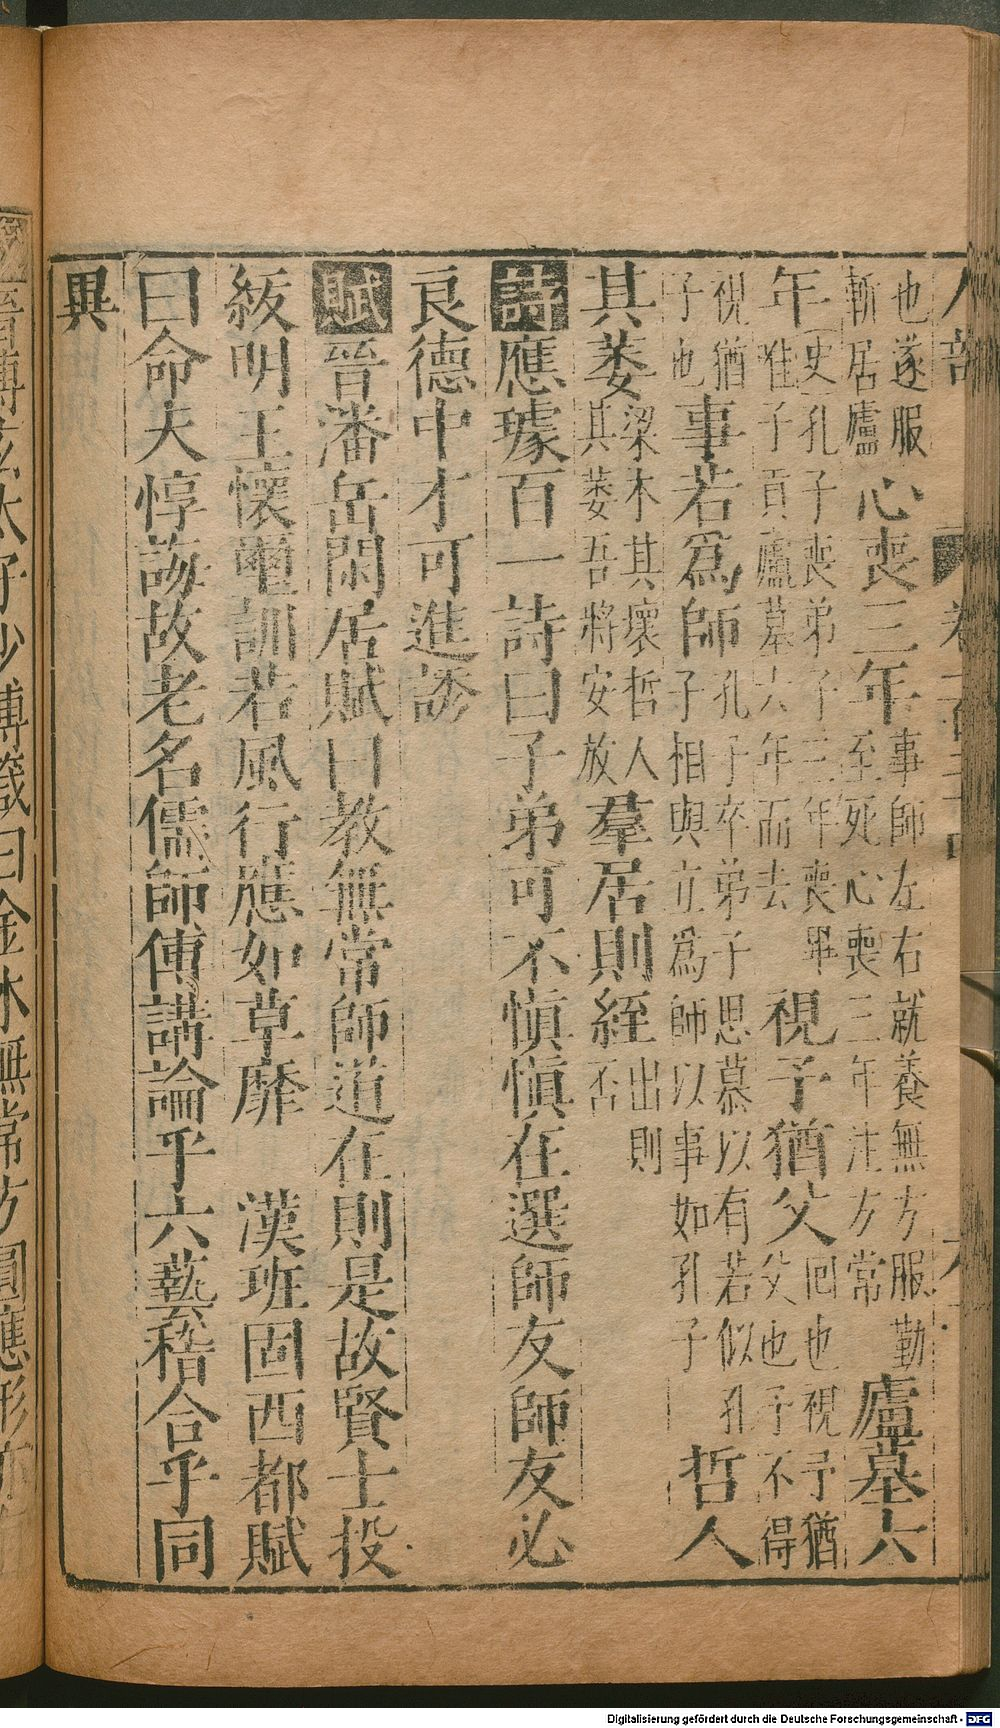 也遂服斬居廬心喪三年事師左右就養無方服勤至死心喪三年注方常廬墓六
年史孔子喪弟子三年喪畢惟子貢廬墓六年而去視子猶父回也視予猶父也予不得
視猶子也事若爲師孔子卒弟子思慕以有若似孔子相與立爲師以事如孔子哲人
其萎梁木其壞哲人其萎吾將安放羣居則絰出則否
詩應璩百一詩曰子弟可不慎慎在選師友師友必
良德中才可進誘
賦晉潘岳閑居賦曰教無常師道在則是故賢士投
紱明王懷璽訓若風行應如草靡 漢班固西都賦
曰命夫惇誨故老名儒師傅講論乎六藝稽合乎同
異
Digitalisierung gefördert durch die Deutsche Forschungsgemeinschaft - DFG